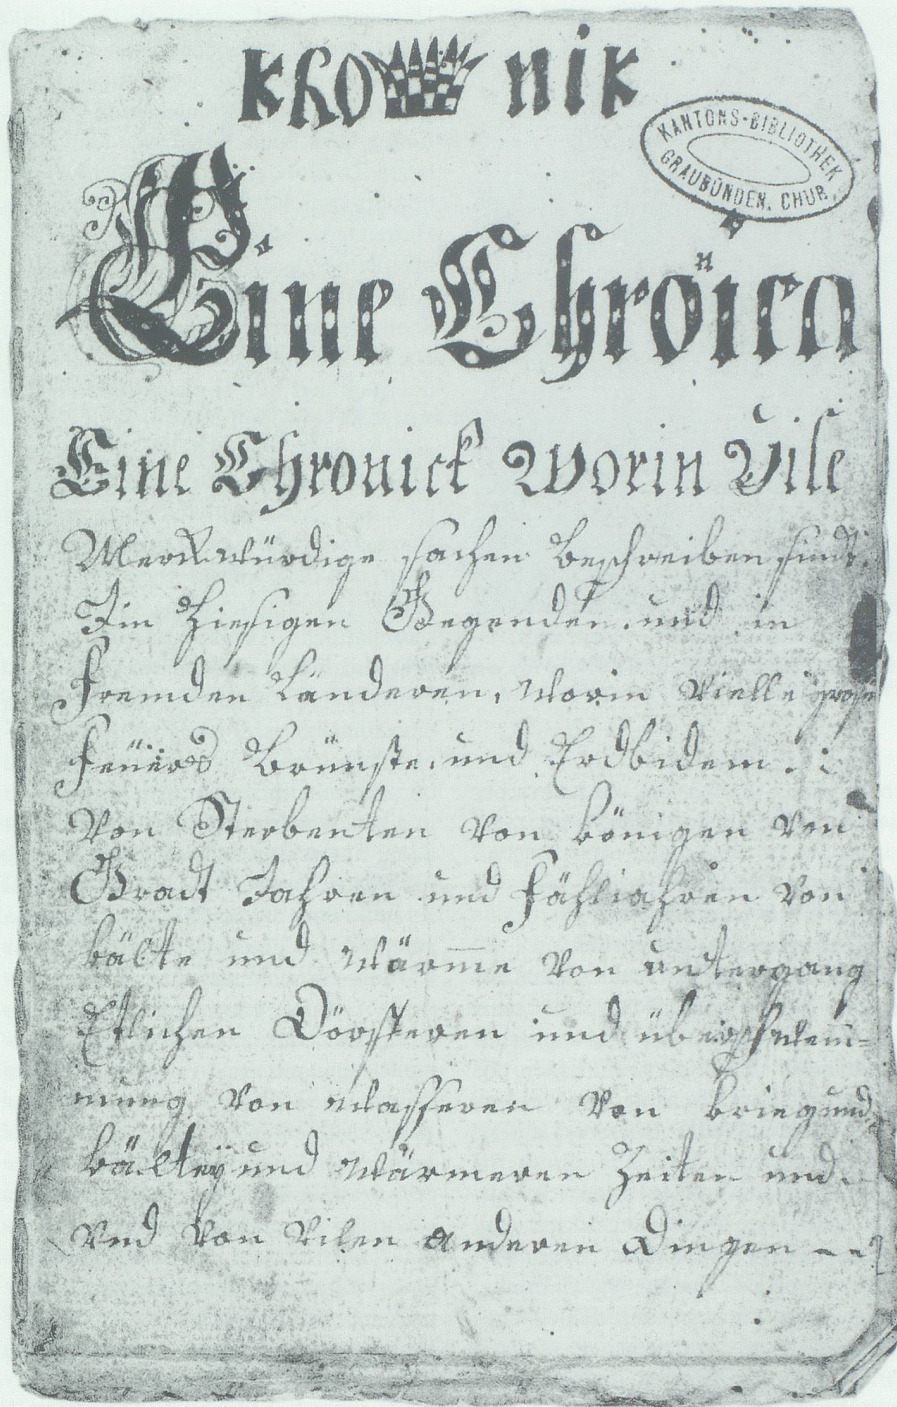 Kro nik
KANTONS-BIBLIOTHEK
GRAUBÜNDEN. CHUR.
Eine Chronica
Eine Chronick Worin Vile
Merkwürdige sachen Beschreiben sindt.
Im Hiesigen Gegenden. und in
Fremden Länderen, Worin Vielle grose
Feüers Brünste. und Erdbidem.
Von Sterbenten Von königen Von
Gradt Jahren und Fähljahren Von
kälte und Wärme Von untergang
Etlichen Dörfferen und überschwem=
mung Von Wasseren Von krieg und
kälteÿ und Wärmeren Zeiten und.
Vnd Von Vilen anderen Dingen